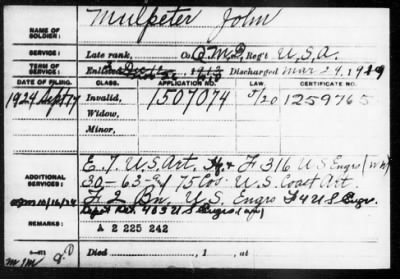 NAME OF SOLDIER: Mulpeter John
SERVICE: Late rank, Co. Q.M.D, Reg't U.S.A.
TERM OF SERVICE: Enlisted Discharged Mar 29, 1919
DATE OF FILING. CLASS. APPLICATION NO. LAW. CERTIFICATE NO.
1924 Sept 17 Invalid, 1507074 J/20 1259765
Widow,
Minor,
E. 7. U.S. Art. Hq. & F 316 U S Engrs (WW)
ADDITIONAL SERVICES: 30-63-91 75 Cos. U.S. Coast Art
10/16/24 F. 2 Bn. U.S. Engrs F 4 U S Engr.
Det. 403 U S Engrs
REMARKS: A 2 225 242
Died , 1 , at